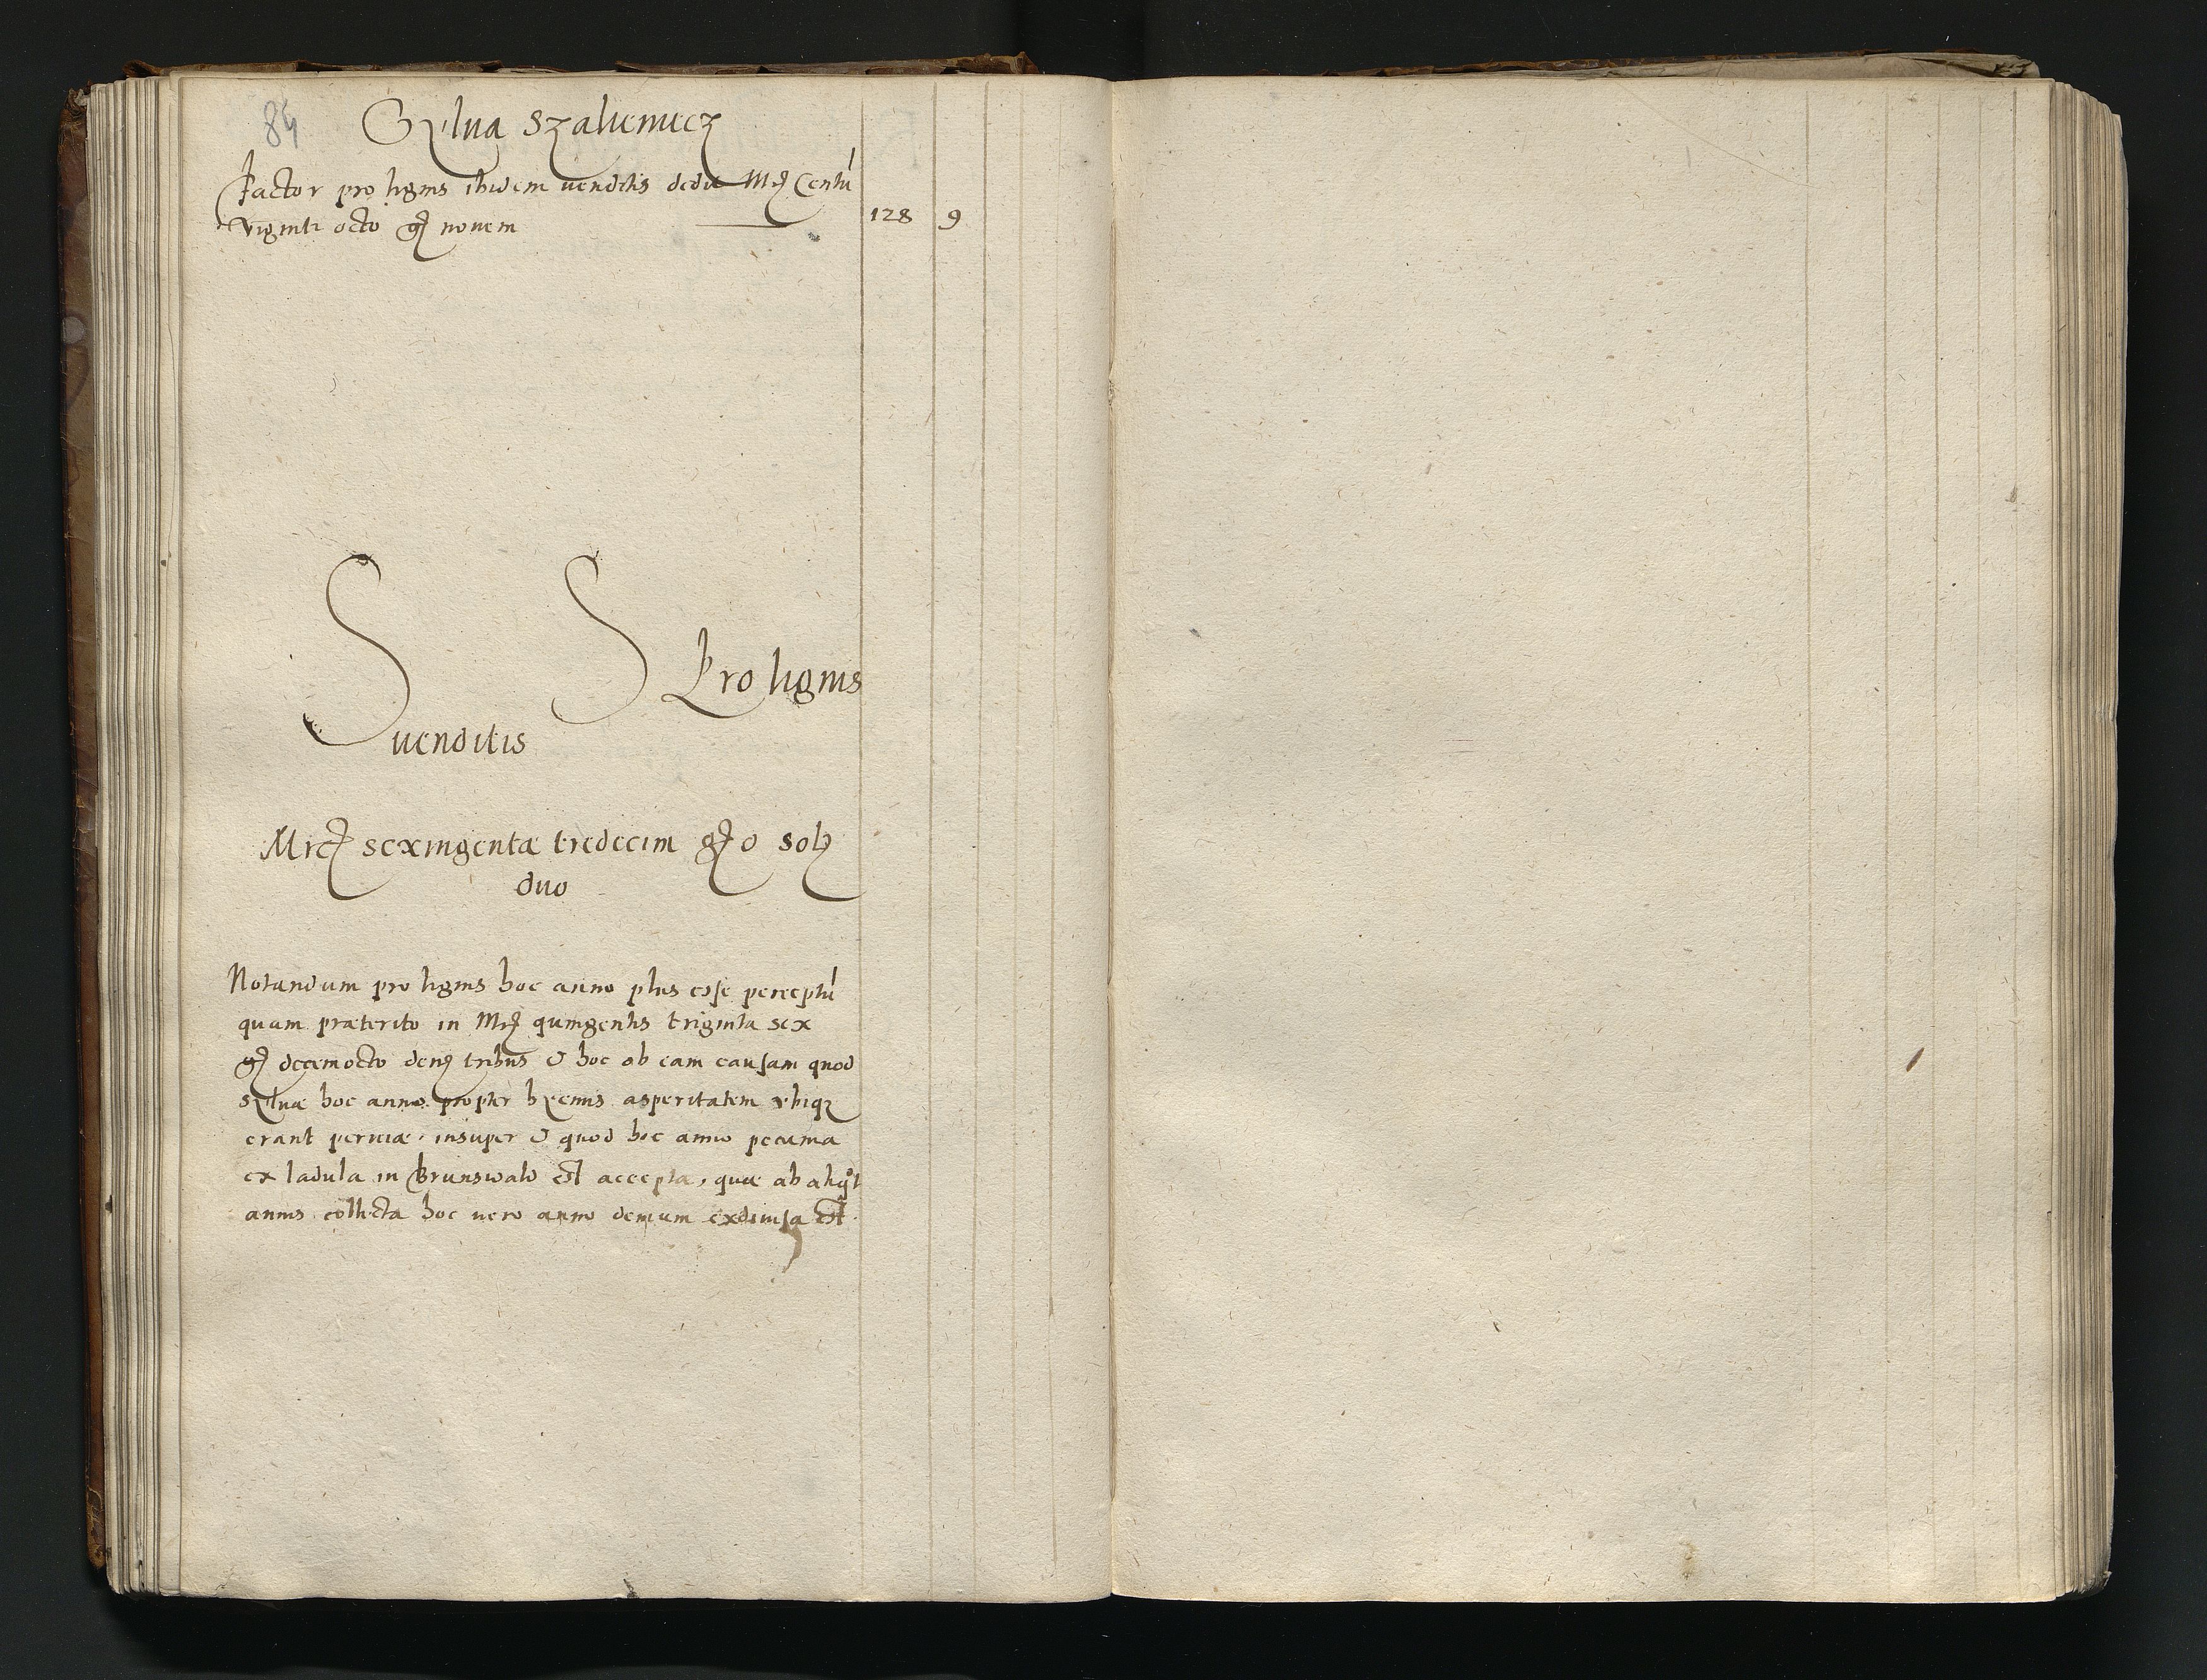 84
Sylua Szalieniecz
Factor pro lignis ibidem uenditis dedit Mrc Centũ
viginti octo gr nouem 128 9
S S Pro lignis
uenditis
Mrc sexingenta tredecim gr 0 sol
duo
Notandum pro lignis hoc anno plus esse perceptũ
quam præterito in Mrc quingentis triginta sex
gr decemocto den tribus & hoc ob eam causam quod
syluæ hoc anno propter hyemis asperitatem vbiq
erant peruiæ, insuper & quod hoc anno pecunia
ex ladula in Brunswald est accepta, quæ ab aliqt
annis collecta hoc uero anno demum est